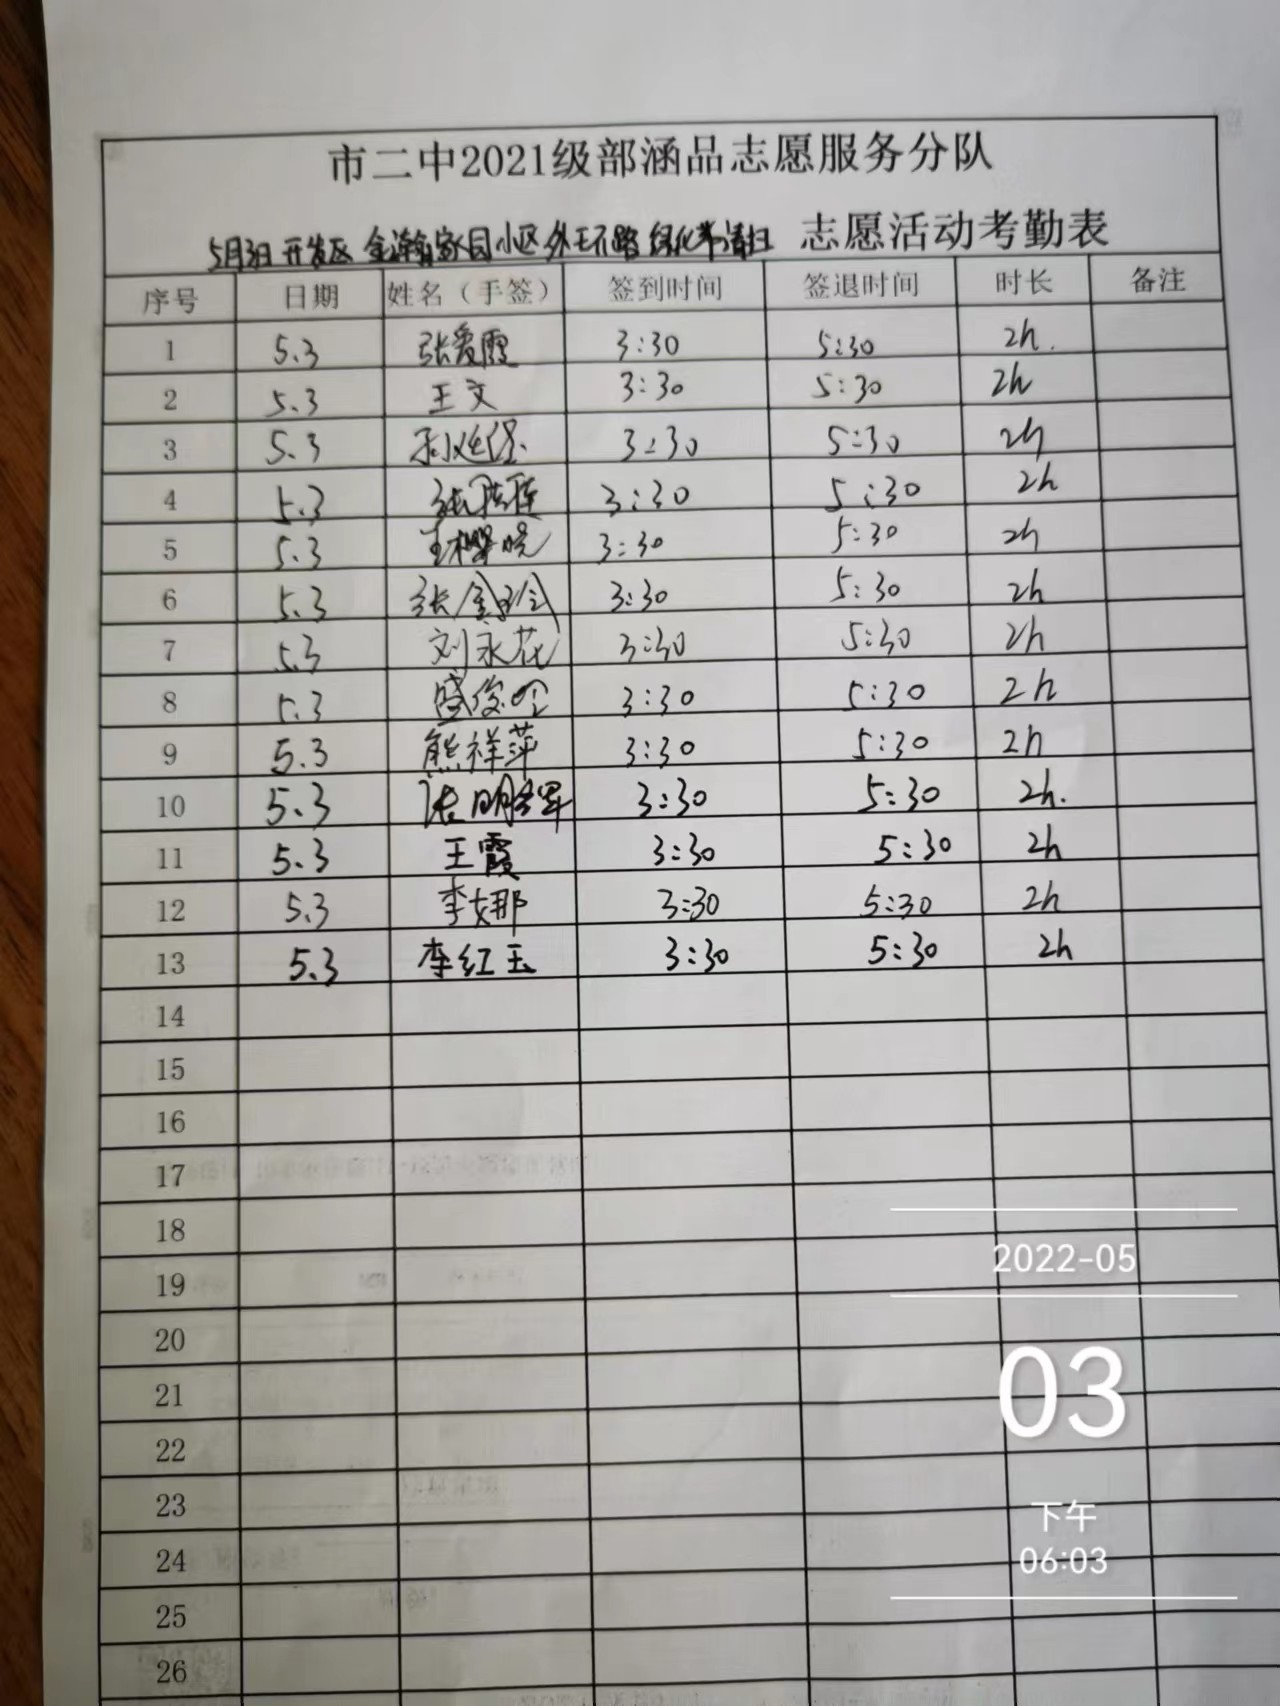 市二中2021级部涵品志愿服务分队
5月3日 开发区 金瀚家园小区外 路 绿化带清扫 志愿活动考勤表
序号 日期 姓名（手签） 签到时间 签退时间 时长 备注
1 5.3 张爱霞 3:30 5:30 2h.
2 5.3 王文 3:30 5:30 2h
3 5.3 3:30 5:30 2h
4 5.3 3:30 5:30 2h
5 5.3 3:30 5:30 2h
6 5.3 3:30 5:30 2h
7 5.3 刘永花 3:30 5:30 2h
8 5.3 3:30 5:30 2h
9 5.3 熊祥萍 3:30 5:30 2h
10 5.3 3:30 5:30 2h.
11 5.3 王霞 3:30 5:30 2h
12 5.3 李娜 3:30 5:30 2h
13 5.3 李红玉 3:30 5:30 2h
14
15
16
17
18
19
20
21
22
23
24
25
26
2022-05
03
下午
06:03